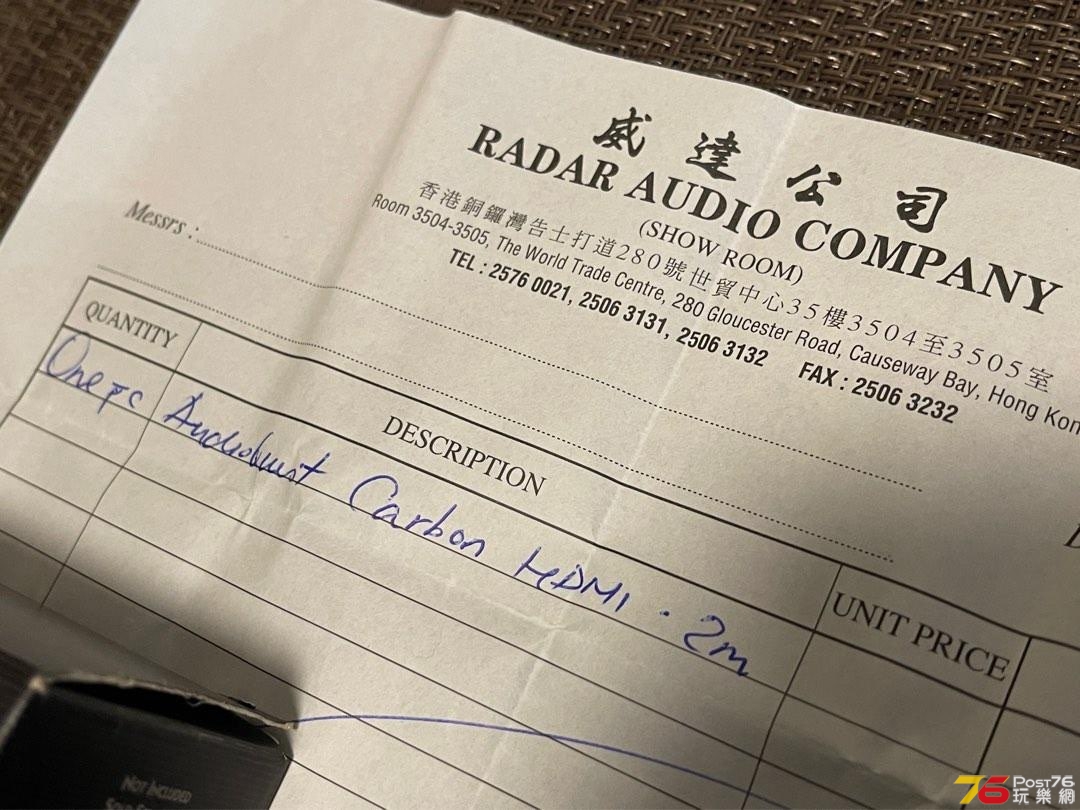 威達公司
RADAR AUDIO COMPANY
(SHOW ROOM)
香港銅鑼灣告士打道280號世貿中心35樓3504至3505室
Room 3504-3505, The World Trade Centre, 280 Gloucester Road, Causeway Bay, Hong Kon
TEL : 2576 0021, 2506 3131, 2506 3132 FAX : 2506 3232
Messrs :
QUANTITY DESCRIPTION UNIT PRICE
One pc Audioquest Carbon HDMI . 2m
NOT INCLUDED
76 POST76
玩樂網